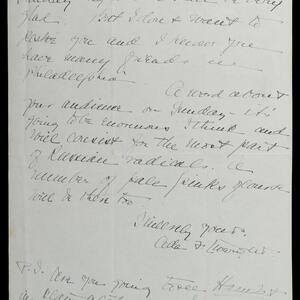 glad. But I don't want to
bother you and I know you
have many friends in
Philadelphia.
A word about
your audience on Sunday - it's
going to be enormous I think and
will consist for the most part
of Russian radicals. A
number of pale pinks of course
will be there too.
Sincerely yours,
P.S. Are you going